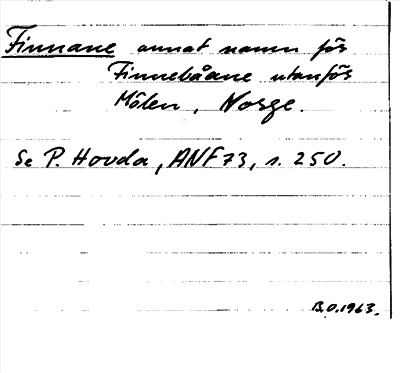 Finnane annat namn för
Finnebåane utanför
Målen, Norge.
Se P. Hovda, ANF 73, s. 250.
B.O. 1963.